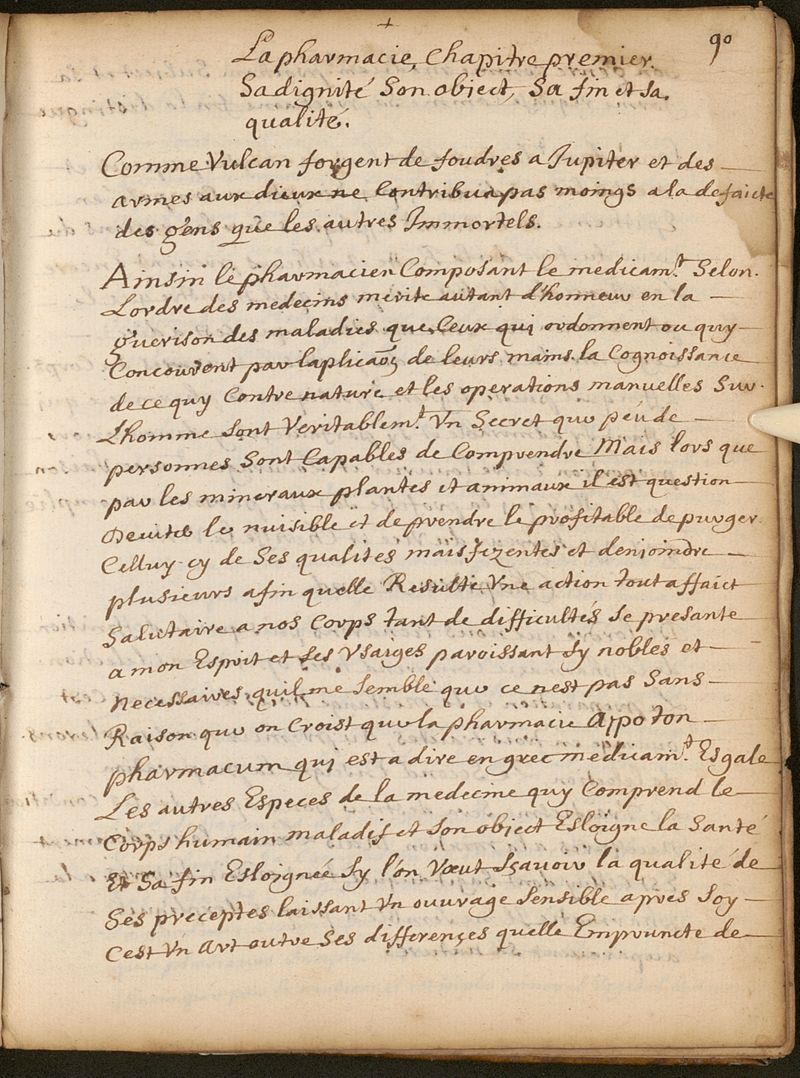 90
La pharmacie, Chapitre premier.
Sa dignité Son object, Sa fin et sa.
qualité.
Comme Vulcan forgent de foudres a Jupiter et des
armes aux dieux ne Contribua pas moings a la defaicte
des gens que les autres Immortels.
Ainsin le pharmacien Composant le medicam.t Selon.
Lordre des medecins merite autant d'honneur en la
guerison des maladies que Ceux qui ordonnent ou quy
Concourent par laplicaon de leurs mains. la Cognoissance
de ce quy Contre nature et les operations manuelles Sur.
L'homme sont Veritablem.t Un Secret que peu de
personnes Sont Capables de Comprendre Mais lors que
par les mineraux plantes et animaux il est question
le nuisible et de prendre le profitable de purger
Celluy-cy de Ses qualites et denjoindre
plusieurs afin quelle Resulte Une action tout affaict
Salutaire a nos Corps tant de difficultés se presante
a mon Esprit et Ses Usaiges paroissant Sy nobles et
Necessaires quil me Semble que ce nest pas Sans
Raison que on Croist que la pharmacie Apo ton
pharmacum qui est a dire en grec medicam.t Esgale
Les autres Especes de la medecine quy Comprend le
Corps humain maladif et Son object Esloigne la Santé
Et Sa fin Esloignée Sy l'on Vœut Sçavoir la qualité de
Ses preceptes laissant Un ouvrage Sensible apres Soy
Cest Un Art outre Ses differençes quelle Emprouncte de